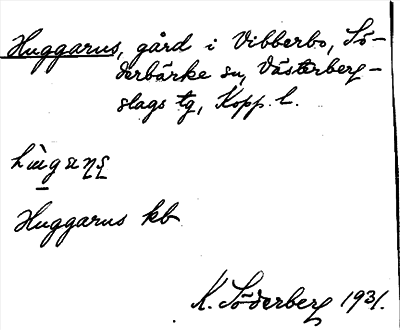 Huggarus, gård i Vibberbo, Sö-
derbärke sn, Västerberg-
slags tg, Kopp. l.
Huggarus kb
K. Söderberg 1931.